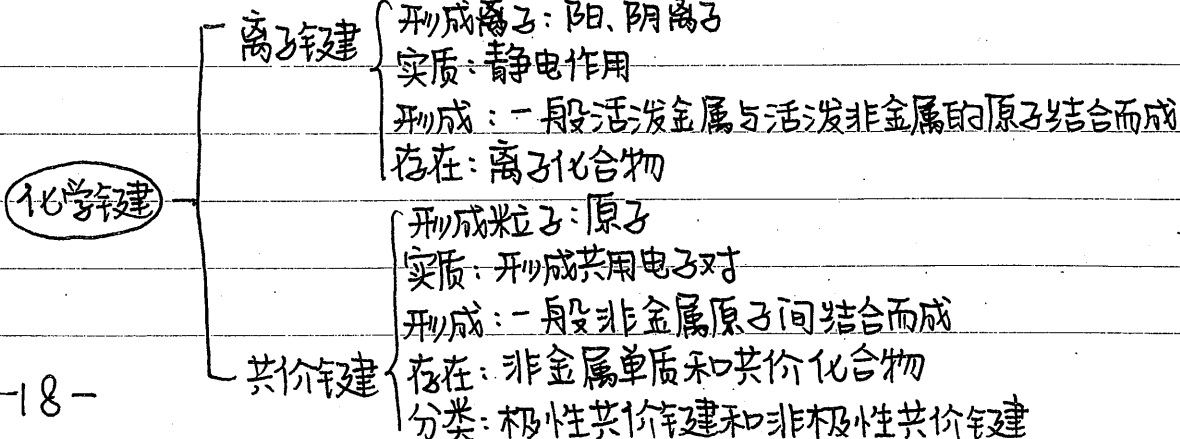 离子键
形成离子：阳、阴离子
实质：静电作用
形成：一般活泼金属与活泼非金属的原子结合而成
存在：离子化合物
化学键
形成粒子：原子
实质：形成共用电子对
形成：一般非金属原子间结合而成
共价键
存在：非金属单质和共价化合物
分类：极性共价键和非极性共价键
-18-